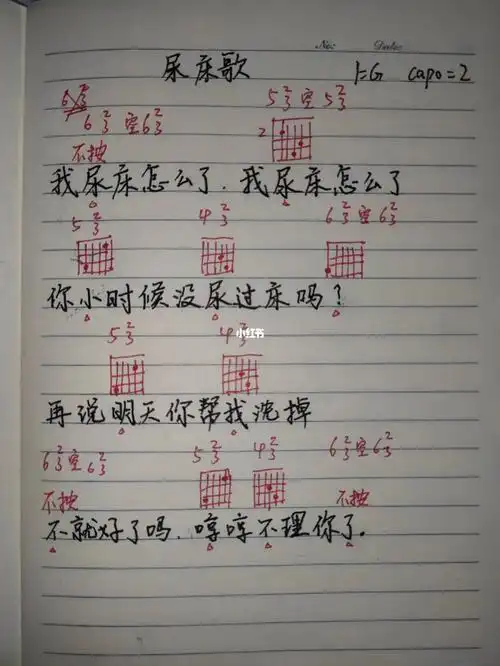 No: Date:
尿床歌 1=G capo=2
6 2/3 5 2/3 空 5 2/3
6 2/3 空 6 2/3
不按 2
我尿床怎么了.我尿床怎么了
5 2/3 4 2/3 6 2/3 空 6 2/3
你小时候没尿过床吗?
小红书
5 2/3 4 2/3
再说明天你帮我洗掉
6 2/3 空 6 2/3 5 2/3 4 2/3 6 2/3 空 6 2/3
不按 不按
不就好了吗.哼哼不理你了.